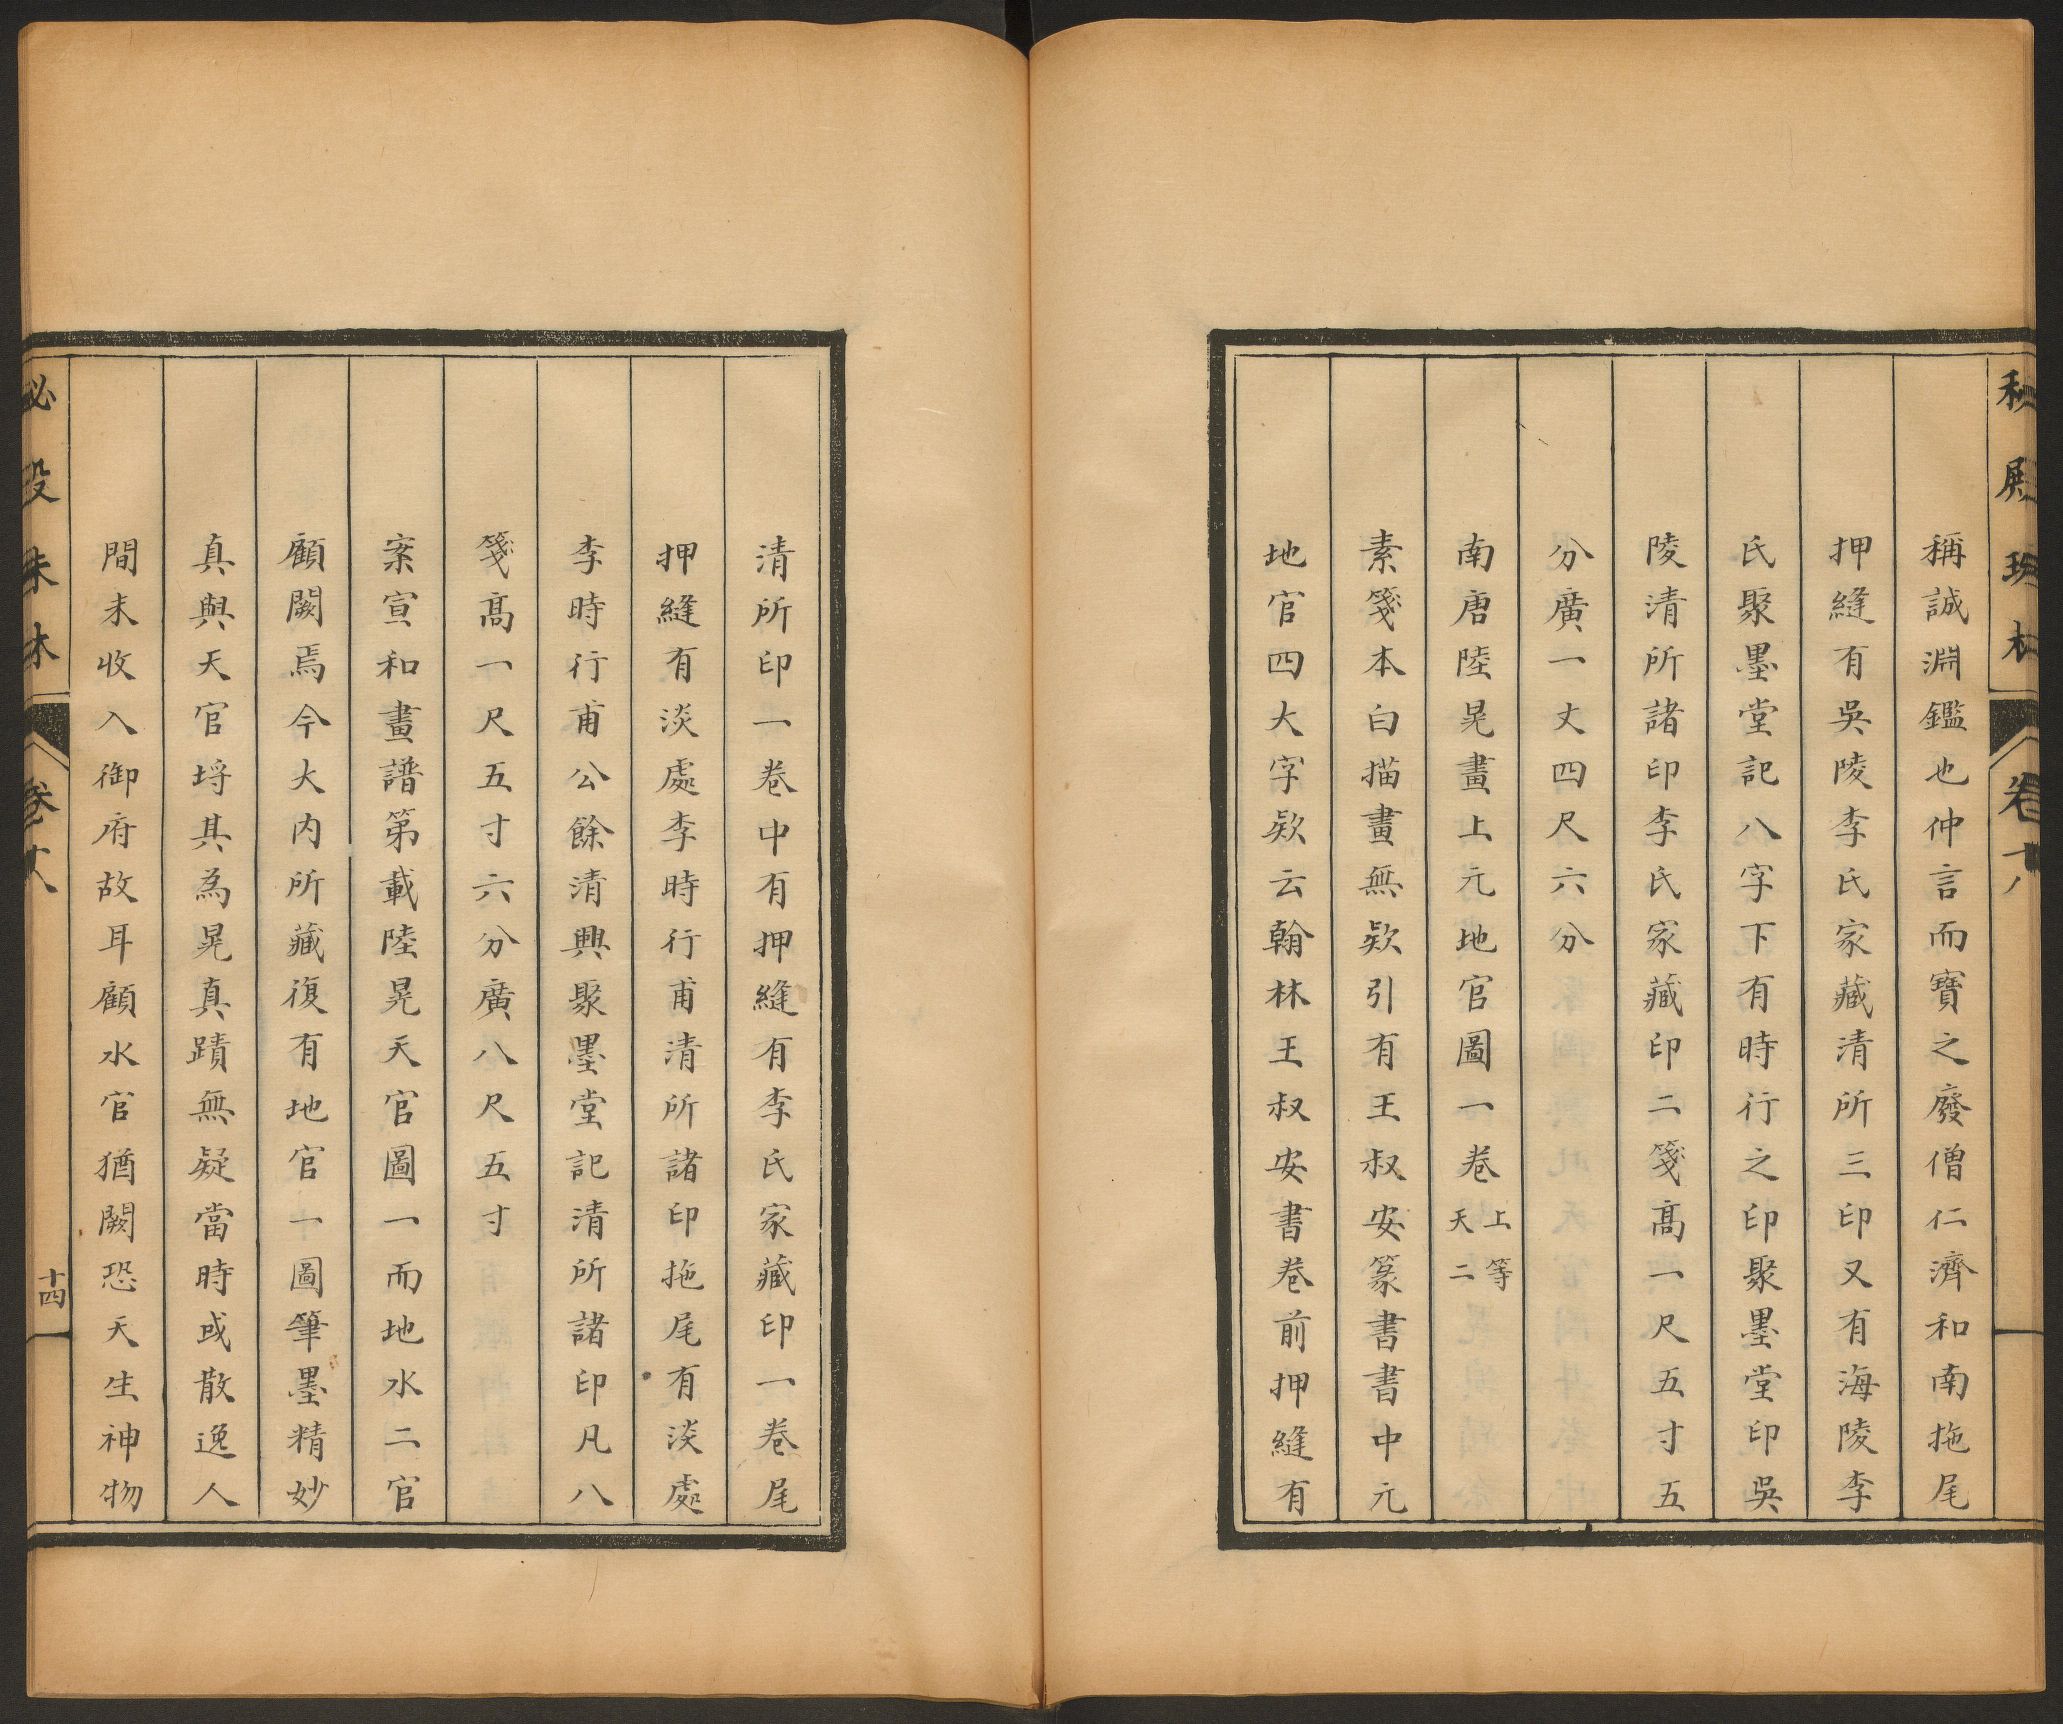 稱誠淵鑑也仲言而寶之廢僧仁濟和南拖尾
押縫有吳陵李氏家藏清所三印又有海陵李
氏聚墨堂記八字下有時行之印聚墨堂印吳
陵清所諸印李氏家藏印二箋高一尺五寸五
分廣一丈四尺六分
南唐陸晃畫上元地官圖一卷 上等 天二
素箋本白描畫無欵引有王叔安篆書書中元
地官四大字欵云翰林王叔安書卷前押縫有
清所印一卷中有押縫有李氏家藏印一卷尾
押縫有淡處李時行甫清所諸印拖尾有淡處
李時行甫公餘清興聚墨堂記清所諸印凡八
箋高一尺五寸六分廣八尺五寸
案宣和畫譜第載陸晃天官圖一而地水二官
顧闕焉今大内所藏復有地官一圖筆墨精妙
真與天官埒其為晃真蹟無疑當時或散逸人
間未收入御府故耳顧水官猶闕恐天生神物
秘殿珠林 卷十八 十四